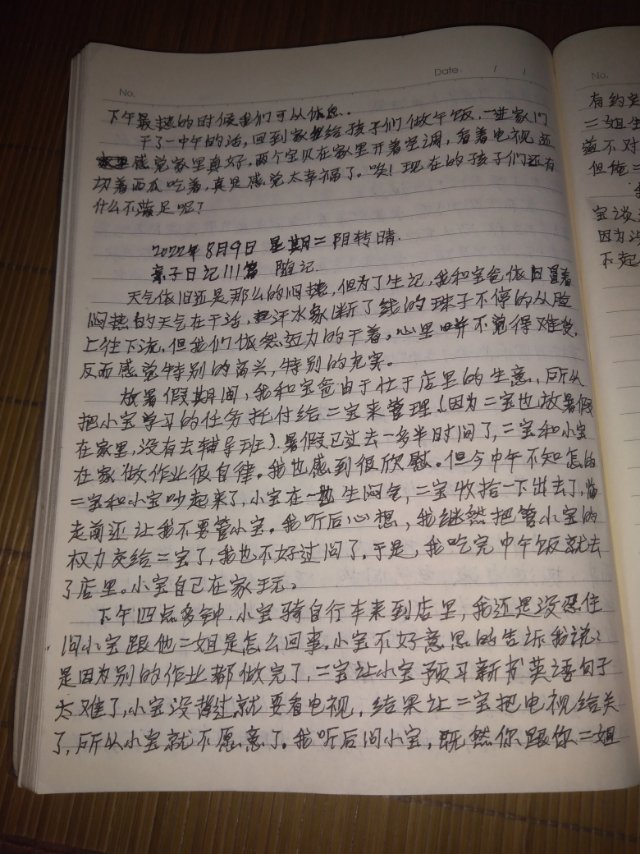 No.
Date / /
下午最热的时候我们可以休息..
干了一中午的活,回到家给孩子们做午饭,一进家门
感觉家里真好,两个宝贝在家里开着空调,看着电视还
切着西瓜吃着,真是感觉太幸福了。唉!现在的孩子们还有
什么不满足呢?
2022年8月9日 星期二 阴转晴.
亲子日记111篇 随记.
天气依旧还是那么的闷热,但为了生记,我和宝爸依旧冒着
闷热的天气在干活,汗水象断了线的珠子不停的从脸
上往下流,但我们依然努力的干着。心里并不觉得难受,
反而感觉特别的高兴,特别的充实。
放暑假期间,我和宝爸由于忙于店里的生意,所以
把小宝学习的任务托付给二宝来管理(因为二宝也放暑假
在家里,没有去辅导班).暑假已过去一多半时间了,二宝和小宝
在家做作业很自律。我也感到很欣慰。但今中午不知怎的
二宝和小宝吵起来了,小宝在一边生闷气,二宝收拾一下出去了,临
走前还让我不要管小宝。我听后心想,我继然把管小宝的
权力交给二宝了,我也不好过问了.于是,我吃完中午饭就去
了店里。小宝自已在家玩。
下午四点多钟,小宝骑自行车来到店里,我还是没忍住
问小宝跟他二姐是怎么回事。小宝不好意思的告诉我说:
是因为别的作业都做完了,二宝让小宝预习新书英语句子
太难了,小宝没背过就要看电视,结果让二宝把电视给关
了,所以小宝就不愿意了。我听后问小宝,既然你跟你二姐
No.
有约定
二姐生
蓝不对
但他二
宝谈
因为
下起